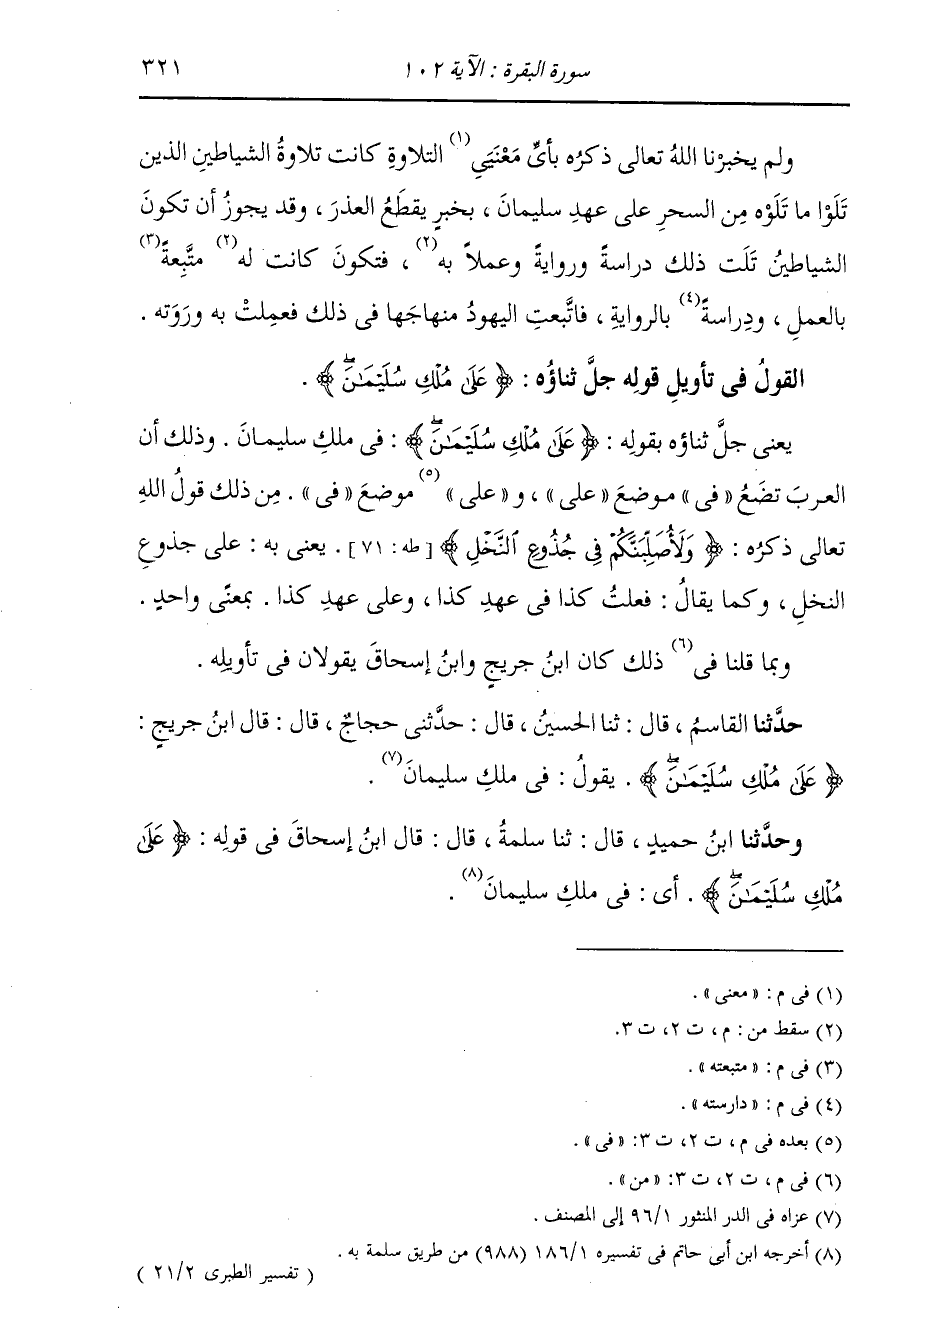 سورة البقرة : الآية ١٠٢ ٣٢١
ولم يخبرْنا اللهُ تعالى ذكرُه بأىِّ مَعْنَيَيِ(١) التلاوةِ كانت تلاوةُ الشياطينِ الذين
تَلَوْا ما تَلَوْه مِن السحرِ على عهدِ سليمانَ ، بخبرٍ يقطَعُ العذرَ ، وقد يجوزُ أن تكونَ
الشياطينُ تَلَت ذلك دراسةً وروايةً وعملاً به(٢) ، فتكونَ كانت له(٢) متَّبِعةً(٣)
بالعملِ ، ودِراسةً(٤) بالروايةِ ، فاتَّبعتِ اليهودُ منهاجَها فى ذلك فعمِلتْ به ورَوَته .
القولُ فى تأويلِ قولِه جلَّ ثناؤُه : ﴿ عَلَىٰ مُلْكِ سُلَيْمَـٰنَۖ ﴾ .
يعنى جلَّ ثناؤه بقولِه : ﴿ عَلَىٰ مُلْكِ سُلَيْمَـٰنَۖ ﴾ : فى ملكِ سليمانَ . وذلك أن
العربَ تضَعُ « فى » موضعَ « على » ، و « على »(٥) موضعَ « فى » . مِن ذلك قولُ اللهِ
تعالى ذكرُه : ﴿ وَلَأُصَلِّبَنَّكُمْ فِى جُذُوعِ ٱلنَّخْلِ ﴾ [ طه : ٧١ ] . يعنى به : على جذوعِ
النخلِ ، وكما يقالُ : فعلتُ كذا فى عهدِ كذا ، وعلى عهدِ كذا . بمعنًى واحدٍ .
وبما قلنا فى(٦) ذلك كان ابنُ جريجٍ وابنُ إسحاقَ يقولان فى تأويلِه .
حدَّثنا القاسمُ ، قال : ثنا الحسينُ ، قال : حدَّثنى حجاجٌ ، قال : قال ابنُ جريجٍ :
﴿ عَلَىٰ مُلْكِ سُلَيْمَـٰنَۖ ﴾ . يقولُ : فى ملكِ سليمانَ(٧) .
وحدَّثنا ابنُ حميدٍ ، قال : ثنا سلمةُ ، قال : قال ابنُ إسحاقَ فى قولِه : ﴿ عَلَىٰ
مُلْكِ سُلَيْمَـٰنَۖ ﴾ . أى : فى ملكِ سليمانَ(٨) .
(١) فى م : « معنى » .
(٢) سقط من : م ، ت ٢، ت ٣.
(٣) فى م : « متبعته » .
(٤) فى م : « دارسته » .
(٥) بعده فى م ، ت ٢، ت ٣: « فى » .
(٦) فى م ، ت ٢، ت ٣: « من » .
(٧) عزاه فى الدر المنثور ٩٦/١ إلى المصنف .
(٨) أخرجه ابن أبى حاتم فى تفسيره ١٨٦/١ (٩٨٨) من طريق سلمة به .
( تفسير الطبرى ٢١/٢ )